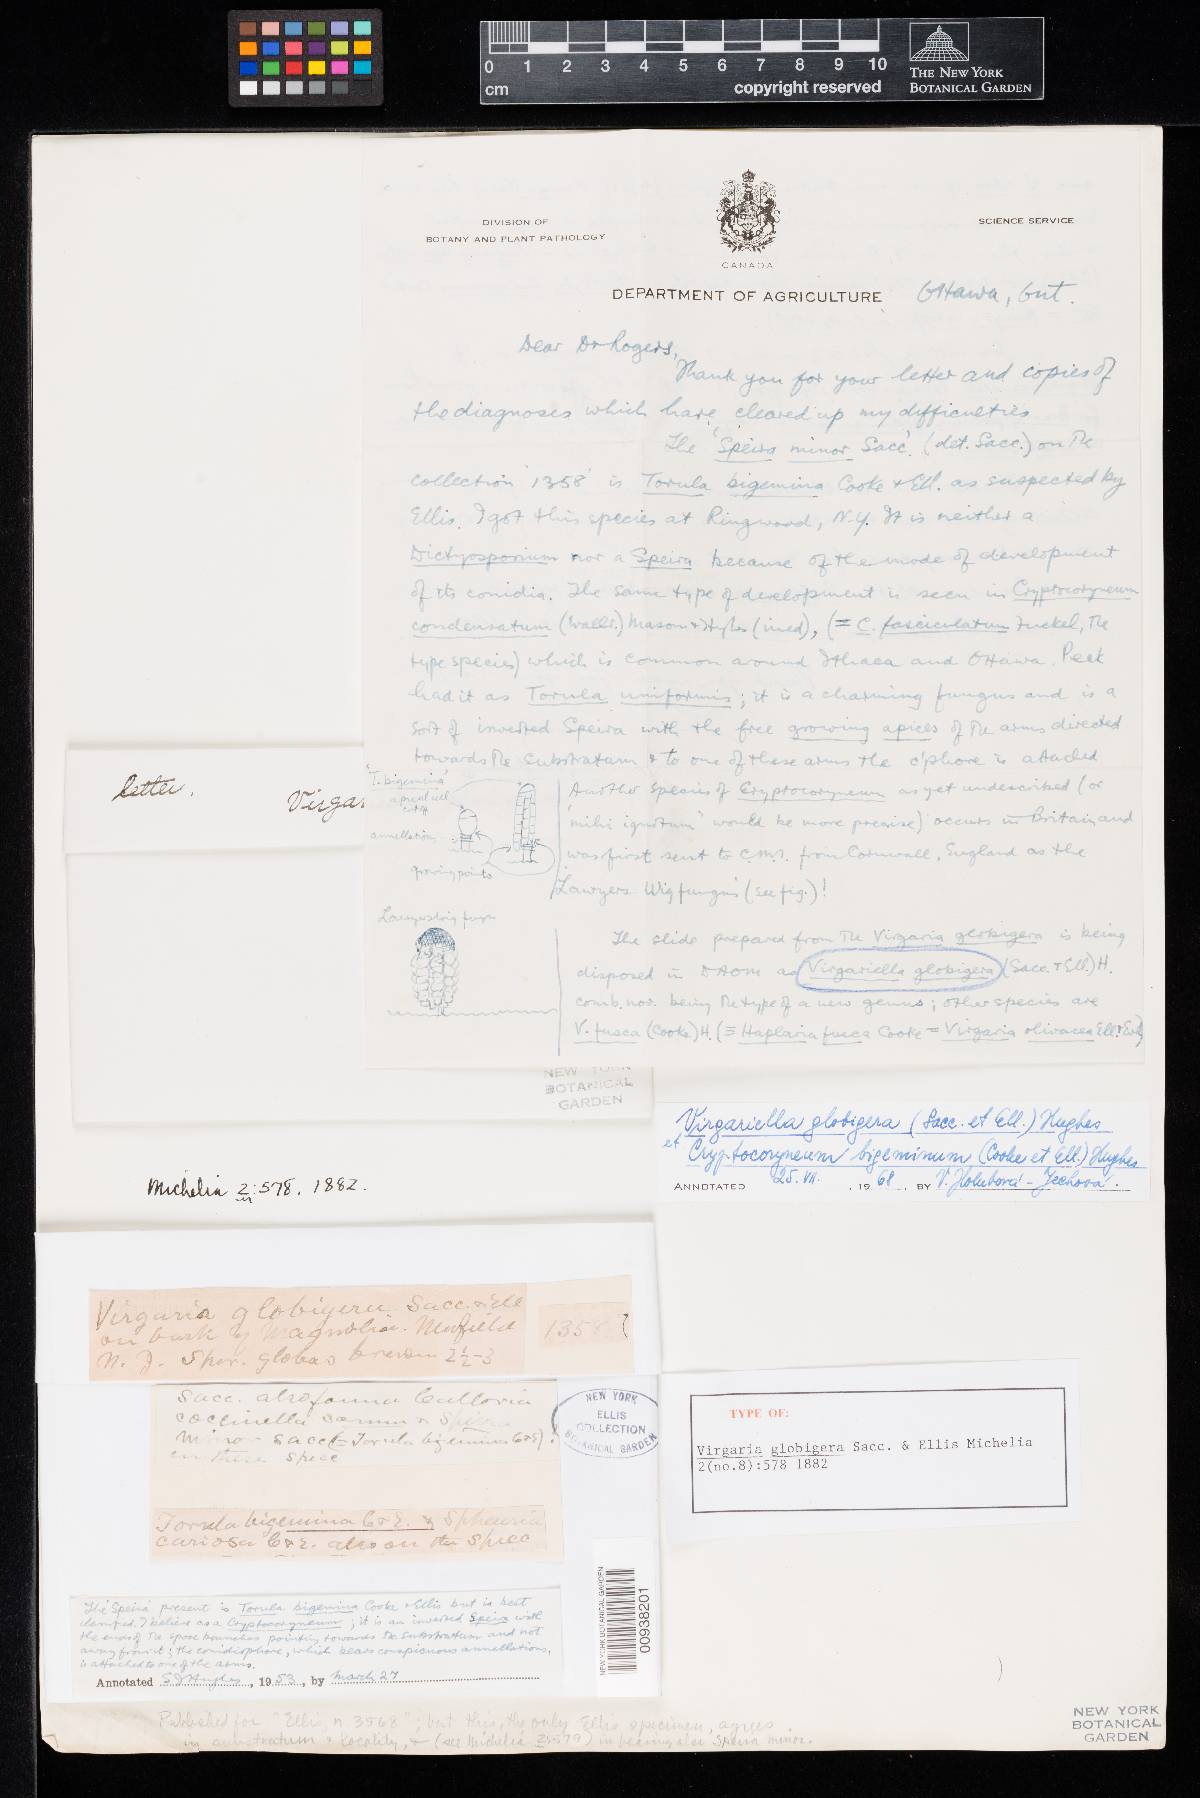 0 1 2 3 4 5 6 7 8 9 10
cm
copyright reserved
THE NEW YORK
BOTANICAL GARDEN
DIVISION OF
BOTANY AND PLANT PATHOLOGY
SCIENCE SERVICE
CANADA
DEPARTMENT OF AGRICULTURE
Ottawa, Ont.
Dear Dr Rogers,
Thank you for your letter and copies of
the diagnoses which have cleared up my difficulties
The 'Speira minor Sacc'. (det. Sacc.) on the
collection '1358' is Torula bigemina Cooke & Ell. as suspected by
Ellis. I got this species at Ringwood, N.Y. It is neither a
Dictyosporium nor a Speira because of the mode of development
of its conidia. The same type of development is seen in Cryptocoryneum
condensatum (Wallr.) Mason & Hughes (ined), (= C. fasciculatum Fuckel, the
type species) which is common around Ithaca and Ottawa. Peck
had it as Torula uniformis; it is a charming fungus and is a
sort of inverted Speira with the free growing apices of the arms directed
towards the substratum & to one of these arms the c'phore is attached
'T. bigemina'
apical cell
cut off
annellations
growing points
Another species of Cryptocoryneum as yet undescribed (or
'mihi ignotum' would be more precise) occurs in Britain and
was first sent to C.M.I. from Cornwall, England as the
'Lawyers Wig fungus' (see fig.)!
Lawyers Wig fungus
The slide prepared from the Virgaria globigera is being
disposed in DAOM as Virgariella globigera (Sacc. & Ell.) H.
comb. nov. being the type of a new genus; other species are
V. fusca (Cooke) H. (≡ Haplaria fusca Cooke = Virgaria olivacea Ell. & Ev.)
letter.
Virgar
NEW YORK
BOTANICAL
GARDEN
Virgariella globigera (Sacc. et Ell.) Hughes
et Cryptocoryneum bigeminum (Cooke et Ell.) Hughes
ANNOTATED 25. VII. , 19 68 , BY V. Holubová-Jechová.
Michelia 2:578. 1882.
Virgaria globigera Sacc. & Ell
on bark of Magnolia. Newfield
N. J. Spor. globas brown 2½-3
1358
Sacc. also found Calloria
coccinella Somm & Speira
minor Sacc (= Torula bigemina C&E).
on this spec
NEW YORK
ELLIS
COLLECTION
BOTANICAL GARDEN
Torula bigemina C&E. & Sphaeria
cariosa C&E. also on this spec
TYPE OF:
Virgaria globigera Sacc. & Ellis Michelia
2(no.8):578 1882
The 'Speira' present is Torula bigemina Cooke & Ellis but is best
classified, I believe as a Cryptocoryneum; it is an inverted Speira with
the ends of the spore branches pointing towards the substratum and not
away from it; the conidiophore, which bears conspicuous annellations,
is attached to one of the arms.
Annotated S J Hughes, 19 53, by March 27
NEW YORK BOTANICAL GARDEN
00938201
Published for "Ellis, n. 3568"; but this, the only Ellis specimen, agrees
in substratum & locality, & (see Michelia 2:579) in bearing also Speira minor.
NEW YORK
BOTANICAL
GARDEN